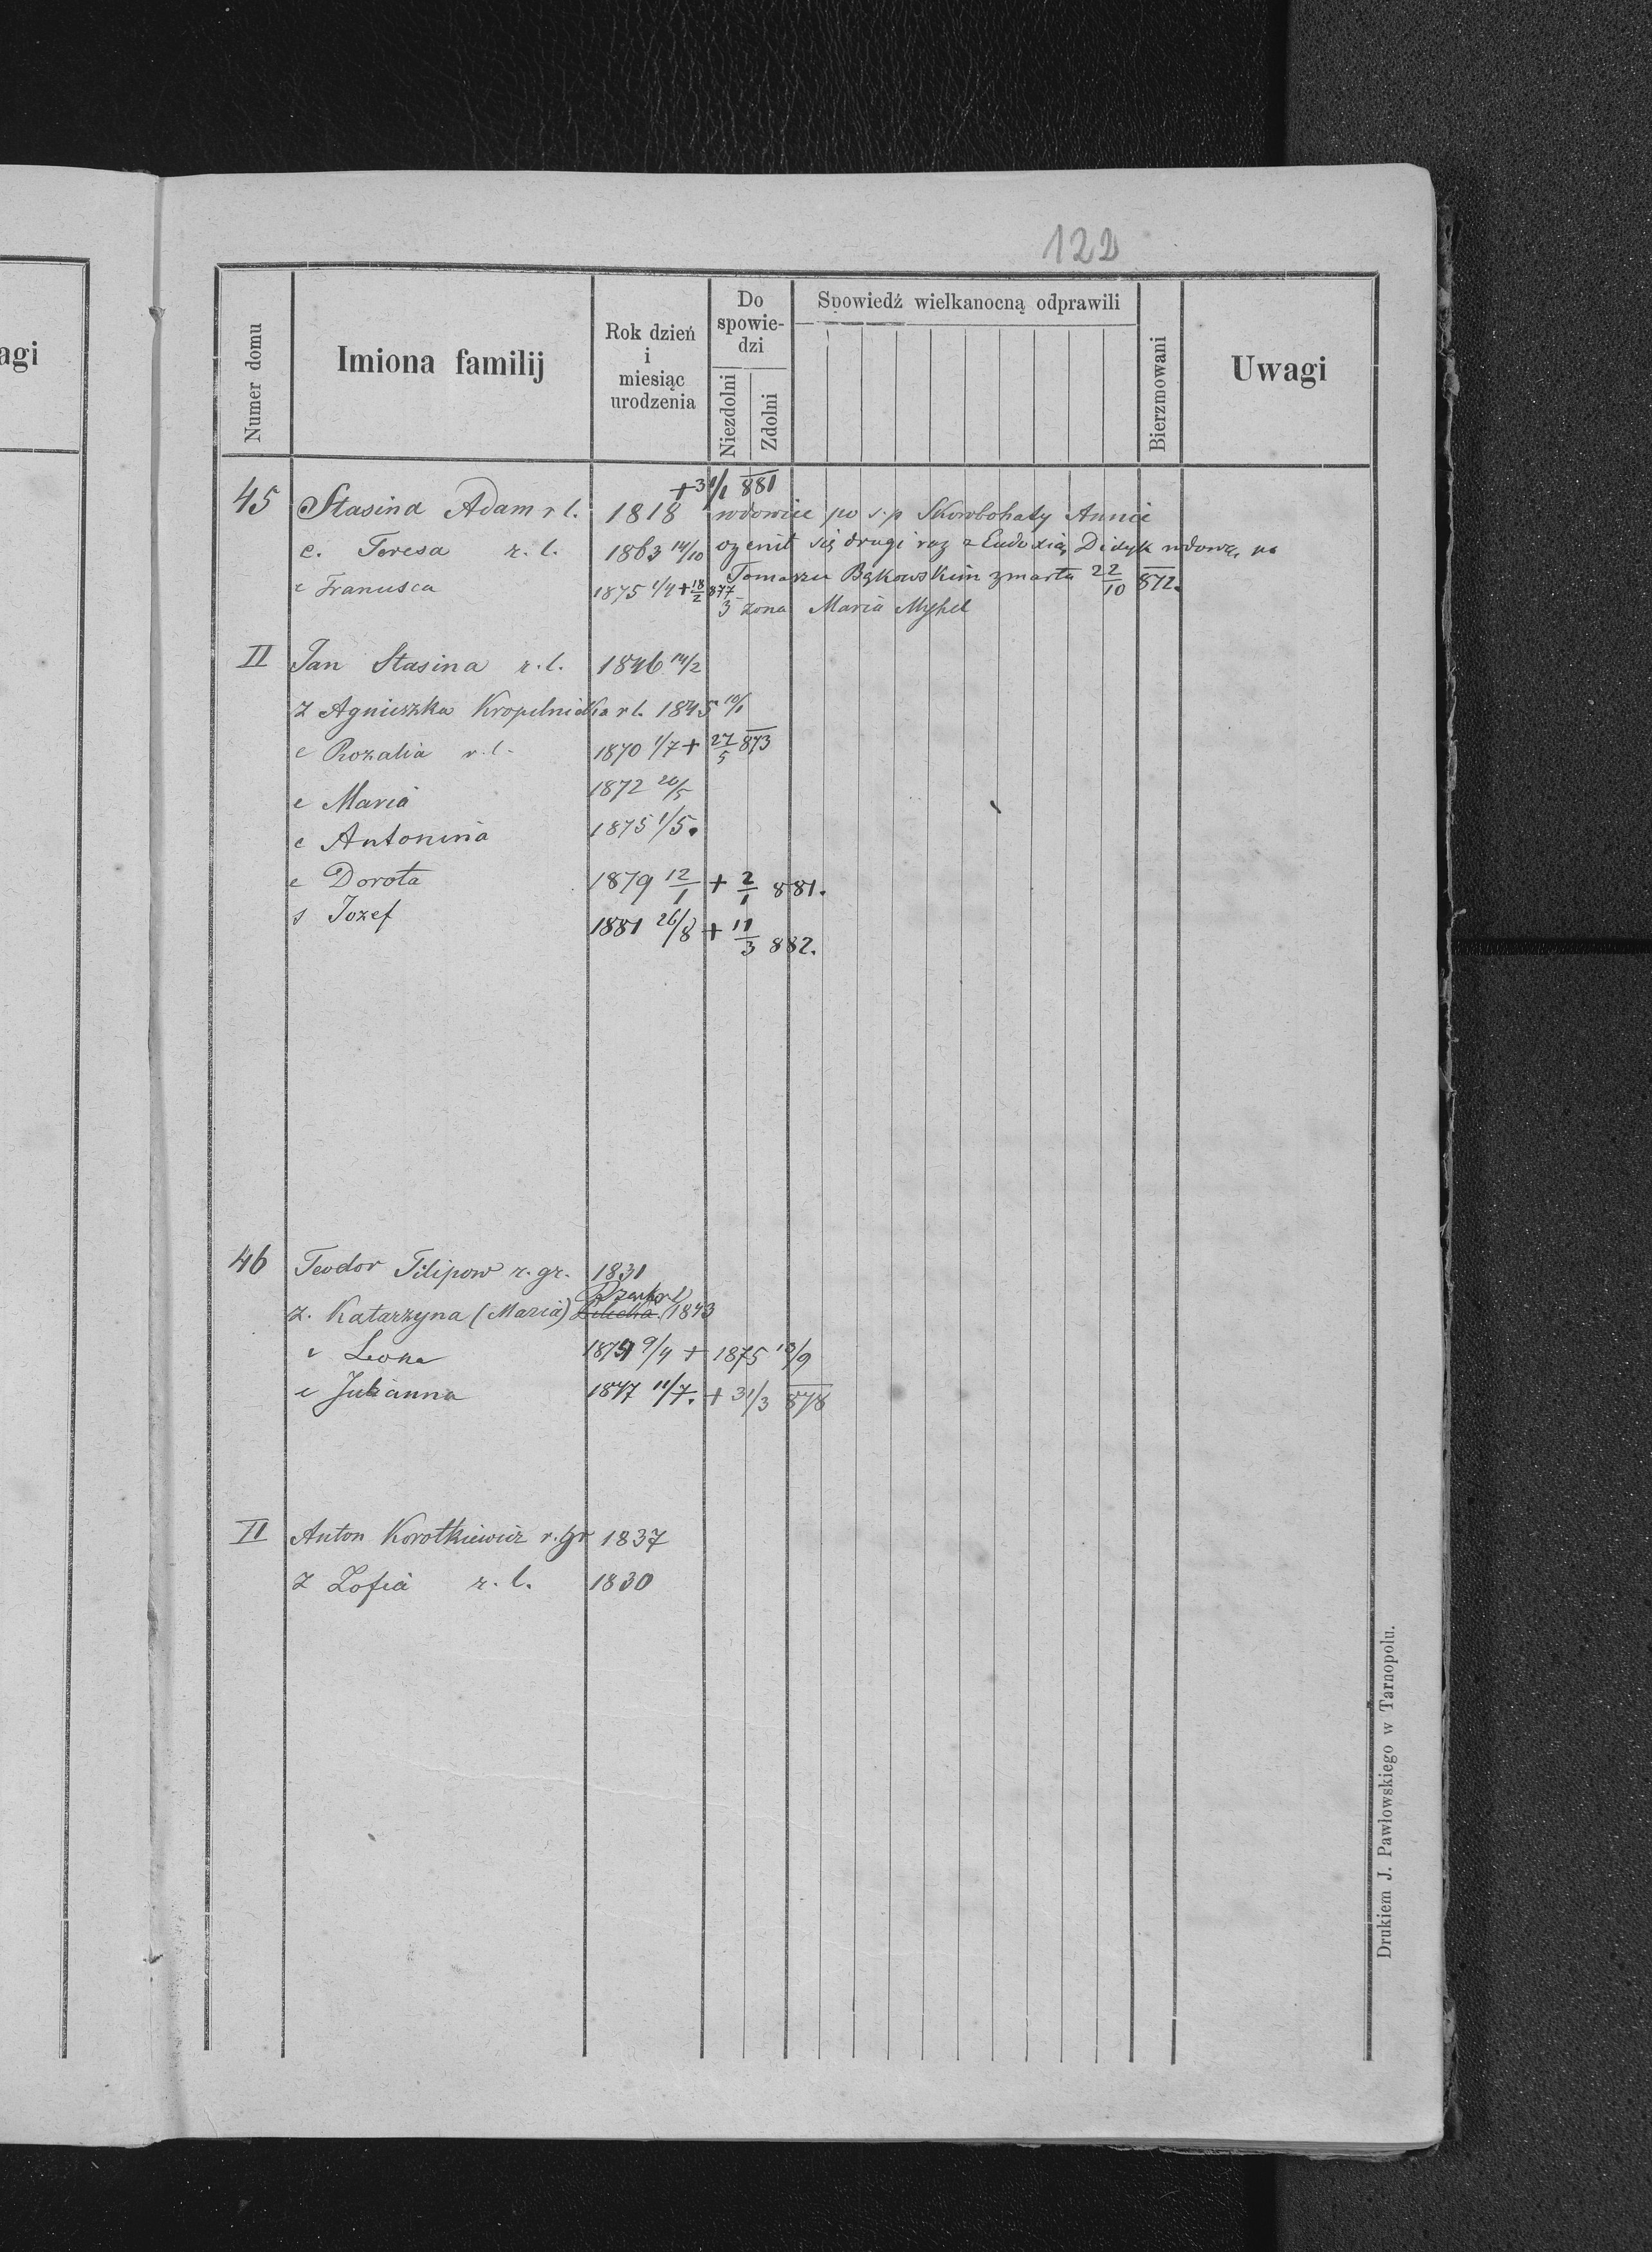 agi
122
Numer domu
Imiona familij
Rok dzień i miesiąc urodzenia
Do spowiedzi
Niezdolni
Zdolni
Spowiedź wielkanocną odprawili
Bierzmowani
Uwagi
45 Stasina Adam r l. 1818 + 31/1 881 wdowiec po s.p Skorobohaty Annie
c. Teresa r. l. 1863 14/10 ożenił się drugi raz z Eudoxią Didyk wdową po
c Franusca 1875 1/4 + 18/2 877 Tomaszu Bąkowskim zmarła 22/10 872.
3 żona Maria Myhel
II Jan Stasina r. l. 1846 14/2
Z Agnieszka Kropelnicka r l. 1845 10/1
c Rozalia r. l. 1870 1/7 + 27/5 873
c Maria 1872 20/5
c Antonina 1875 1/5.
c Dorota 1879 12/1 + 2/1 881.
s Jozef 1881 26/8 + 11/3 882.
46 Teodor Filipow r. gr. 1831
z. Katarzyna (Maria) 1843
c Leona 1874 9/4 + 1875 13/9
c Julianna 1877 11/7. + 31/3 878
II Anton Korotkiewicz r. gr 1837
Z Zofia r. l. 1830
Drukiem J. Pawłowskiego w Tarnopolu.